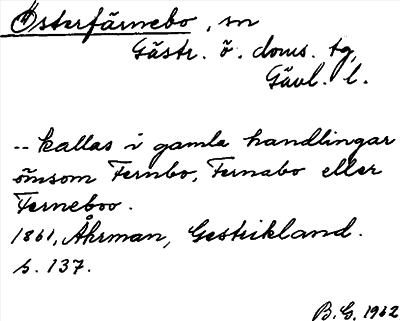 Österfärnebo, sn
Gästr. ö. doms. tg,
Gävl. l.
-- kallas i gamla handlingar
ömsom Fernbo, Fernabo eller
Ferneboo.
1861, Åhrman, Gestrikland.
s. 137.
B.G. 1962